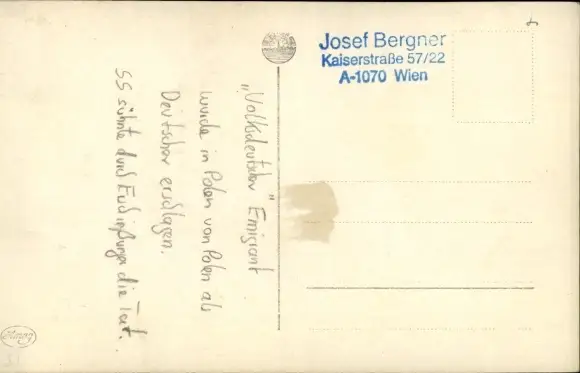 Josef Bergner
Kaiserstraße 57/22
A-1070 Wien
"Volksdeutscher" Emigrant
wurde in Polen von Polen als
Deutscher erschlagen.
SS sühnte durch die Tat.